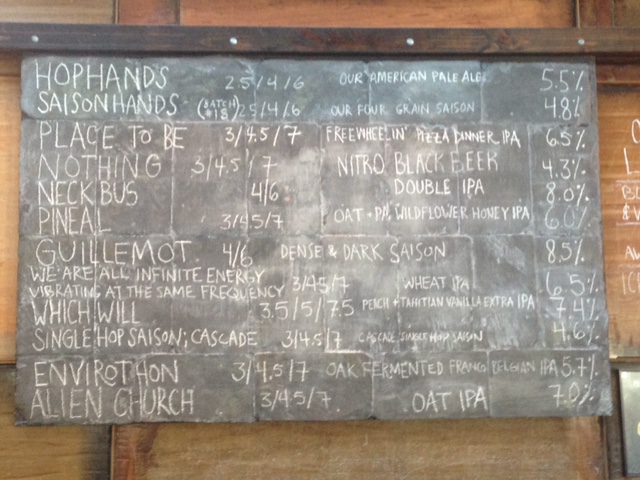 HOPHANDS 2.5/4/6 OUR AMERICAN PALE ALE 5.5%
SAISONHANDS (BATCH #18) 2.5/4/6 OUR FOUR GRAIN SAISON 4.8%
PLACE TO BE 3/4.5/7 FREEWHEELIN' PIZZA DINNER IPA 6.5%
NOTHING 3/4.5/7 NITRO BLACK BEER 4.3%
NECK BUS 4/6 DOUBLE IPA 8.0%
PINEAL 3/4.5/7 OAT + PA. WILDFLOWER HONEY IPA 6.0%
GUILLEMOT 4/6 DENSE & DARK SAISON 8.5%
WE ARE ALL INFINITE ENERGY
VIBRATING AT THE SAME FREQUENCY 3/4.5/7 WHEAT IPA 6.5%
WHICH WILL 3.5/5/7.5 PEACH + TAHITIAN VANILLA EXTRA IPA 7.4%
SINGLE HOP SAISON; CASCADE 3/4.5/7 CASCADE SINGLE HOP SAISON 4.6%
ENVIROTHON 3/4.5/7 OAK FERMENTED FRANCO BELGIAN IPA 5.7%
ALIEN CHURCH 3/4.5/7 OAT IPA 7.0%